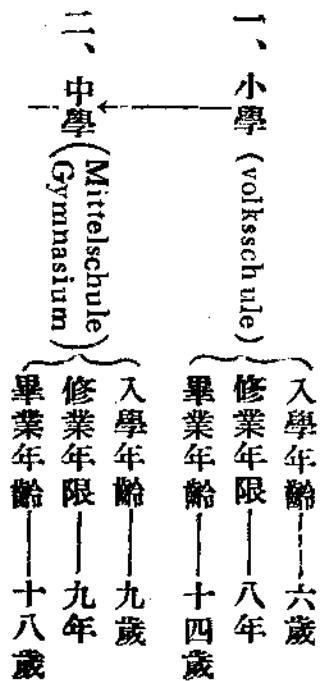 一、小學(volksschule)
入學年齡——六歲
修業年限——八年
畢業年齡——十四歲
二、中學(Mittelschule
Gymnasium)
入學年齡——九歲
修業年限——九年
畢業年齡——十八歲